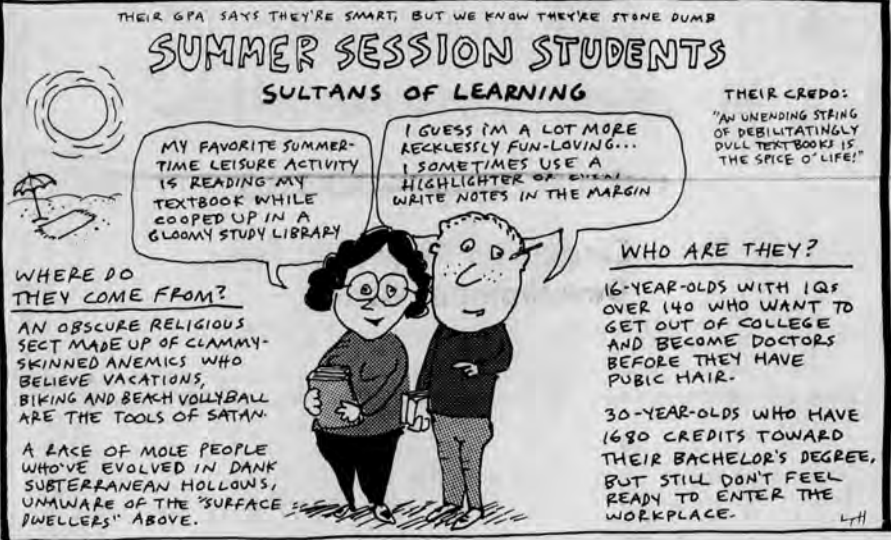 THEIR GPA SAYS THEY'RE SMART, BUT WE KNOW THEY'RE STONE DUMB
SUMMER SESSION STUDENTS
SULTANS OF LEARNING
THEIR CREDO:
"AN UNENDING STRING
OF DEBILITATINGLY
DULL TEXTBOOKS IS
THE SPICE O' LIFE!"
MY FAVORITE SUMMER-
TIME LEISURE ACTIVITY
IS READING MY
TEXTBOOK WHILE
COOPED UP IN A
GLOOMY STUDY LIBRARY
I GUESS I'M A LOT MORE
RECKLESSLY FUN-LOVING...
I SOMETIMES USE A
HIGHLIGHTER OR EVEN
WRITE NOTES IN THE MARGIN
WHERE DO
THEY COME FROM?
AN OBSCURE RELIGIOUS
SECT MADE UP OF CLAMMY-
SKINNED ANEMICS WHO
BELIEVE VACATIONS,
BIKING AND BEACH VOLLYBALL
ARE THE TOOLS OF SATAN.
A RACE OF MOLE PEOPLE
WHO'VE EVOLVED IN DANK
SUBTERRANEAN HOLLOWS,
UNAWARE OF THE "SURFACE
DWELLERS" ABOVE.
WHO ARE THEY?
16-YEAR-OLDS WITH IQs
OVER 140 WHO WANT TO
GET OUT OF COLLEGE
AND BECOME DOCTORS
BEFORE THEY HAVE
PUBIC HAIR.
30-YEAR-OLDS WHO HAVE
1680 CREDITS TOWARD
THEIR BACHELOR'S DEGREE,
BUT STILL DON'T FEEL
READY TO ENTER THE
WORKPLACE.